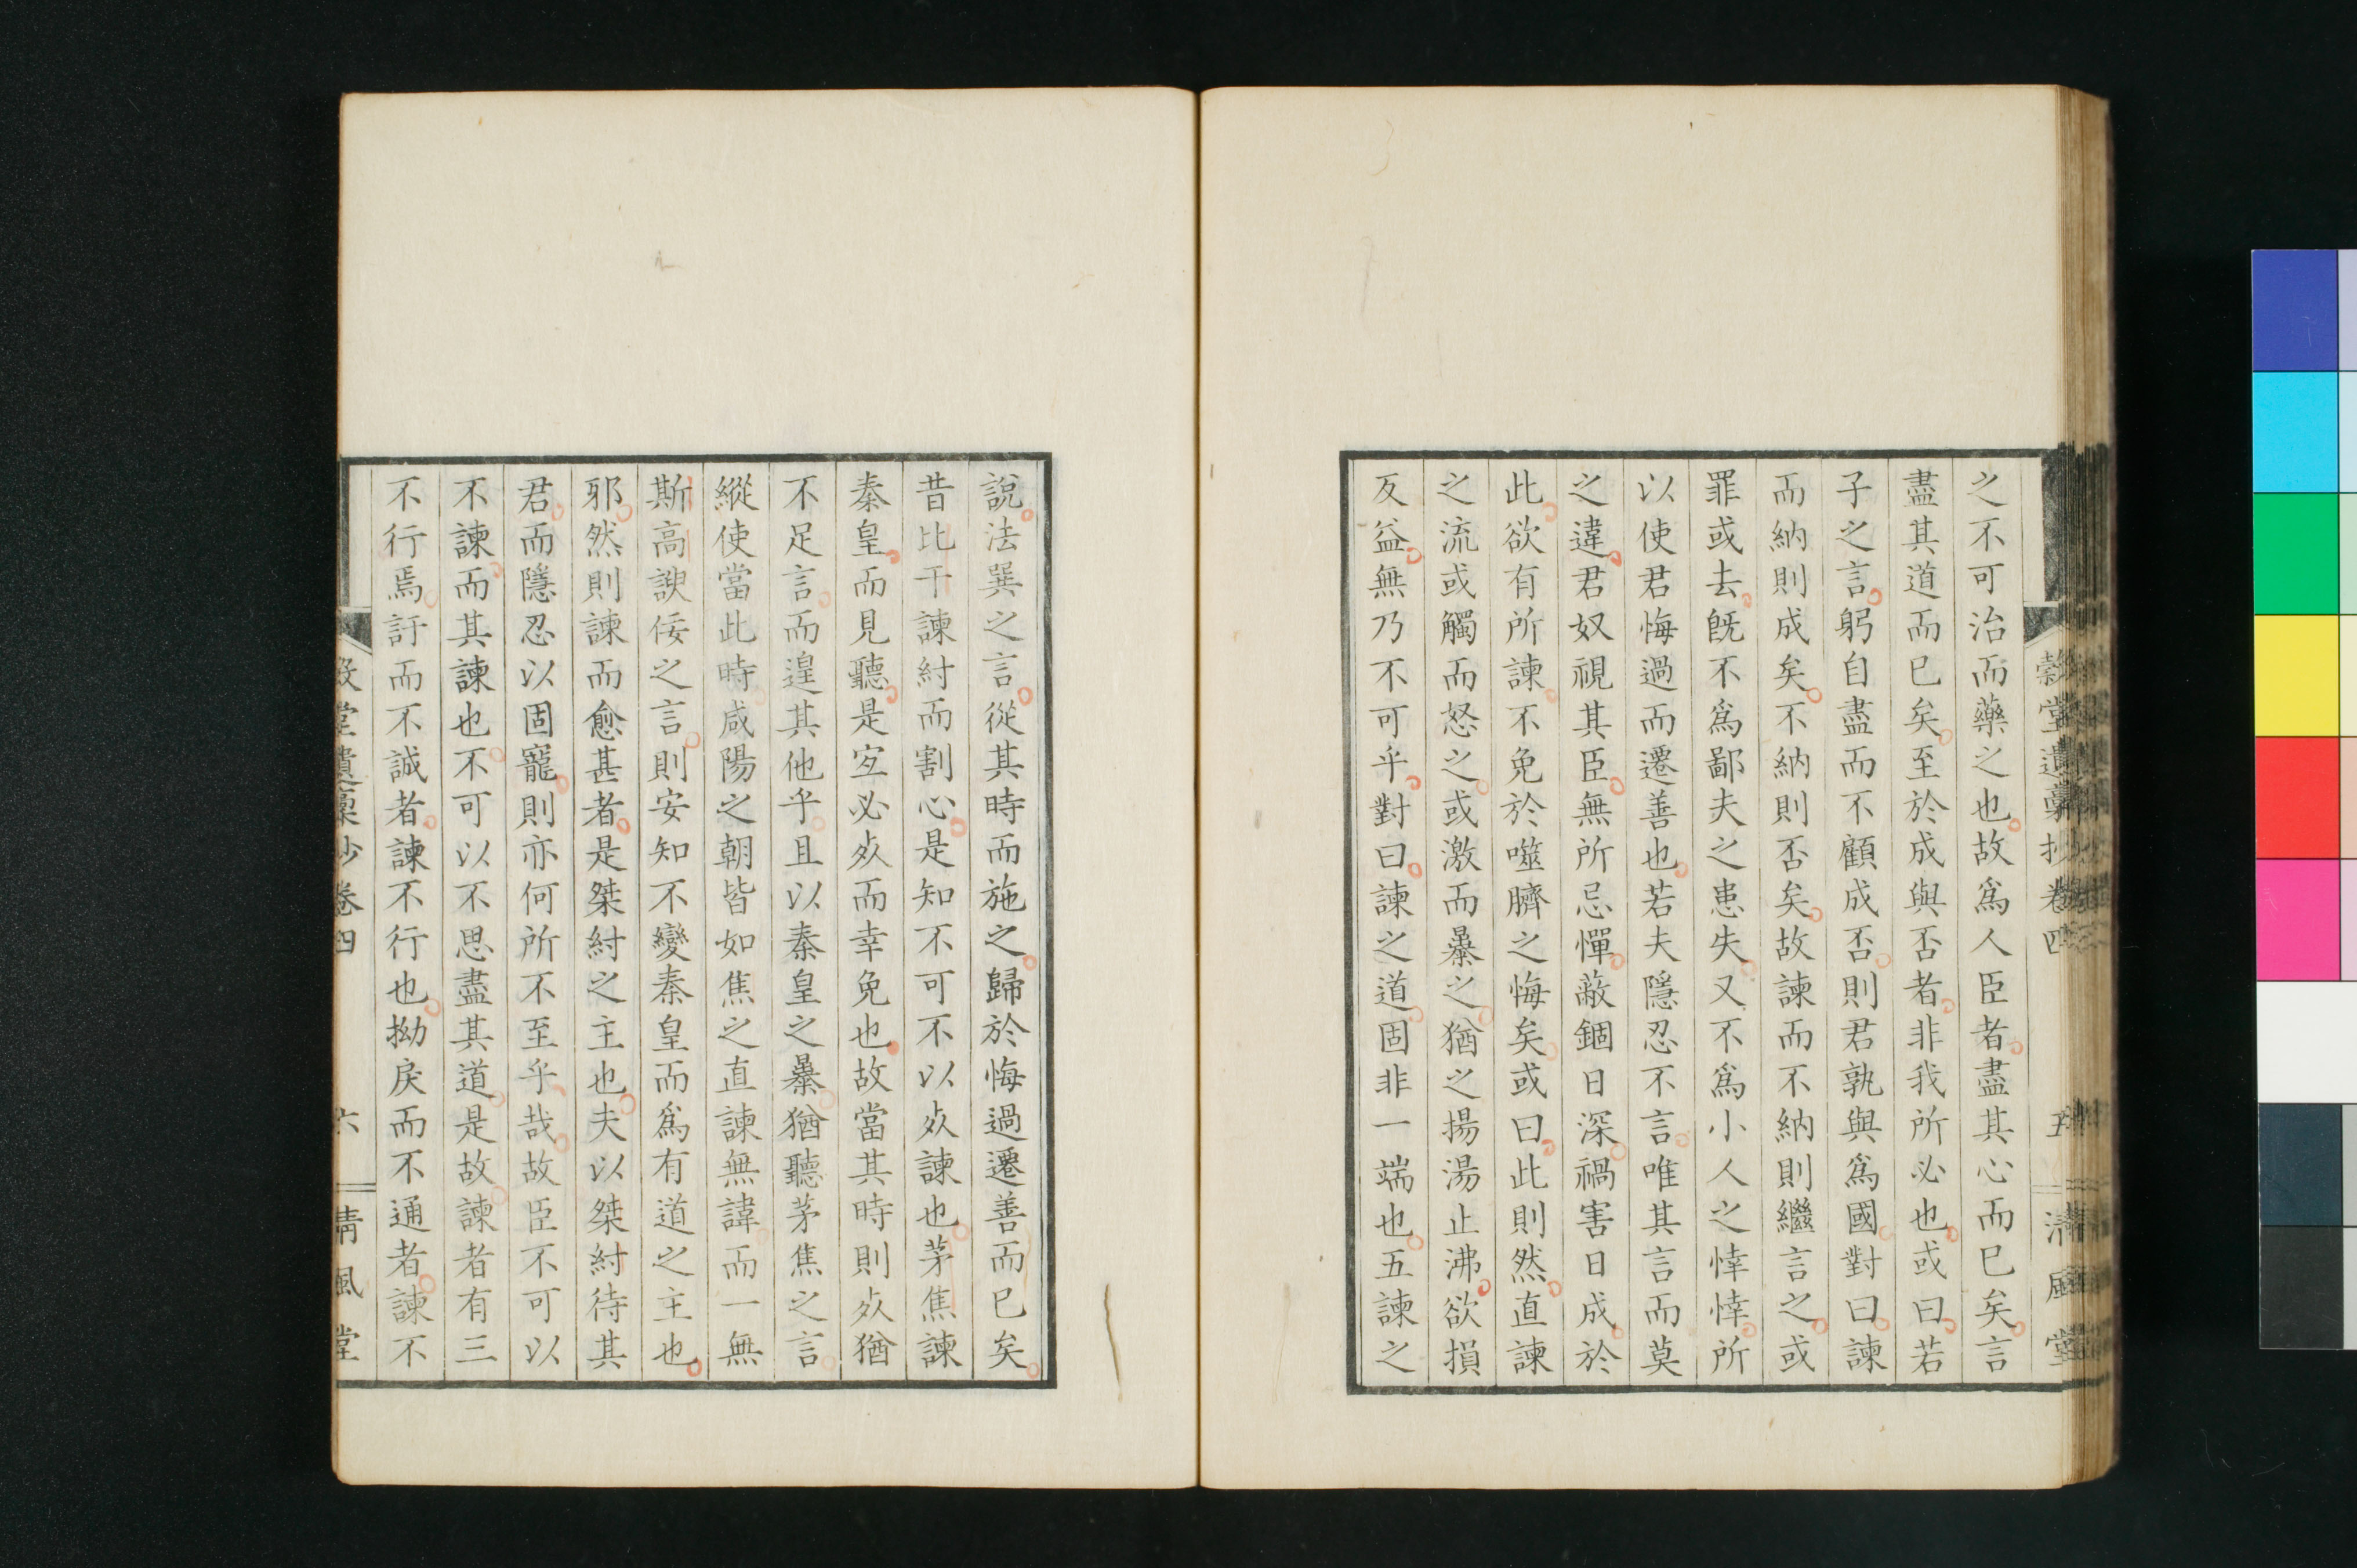 縠堂遺藁抄卷四 五 清風堂
之不可治而藥之也故爲人臣者盡其心而已矣言
盡其道而已矣至於成與否者非我所必也或曰若
子之言躬自盡而不顧成否則君孰與爲國對曰諫
而納則成矣不納則否矣故諫而不納則繼言之或
罪或去旣不爲鄙夫之患失又不爲小人之悻悻所
以使君悔過而遷善也若夫隱忍不言唯其言而莫
之違君奴視其臣無所忌憚蔽錮日深禍害日成於
此欲有所諫不免於噬臍之悔矣或曰此則然直諫
之流或觸而怒之或激而暴之猶之揚湯止沸欲損
反益無乃不可乎對曰諫之道固非一端也五諫之
說法巽之言從其時而施之歸於悔過遷善而已矣
昔比干諫紂而割心是知不可不以死諫也茅焦諫
秦皇而見聽是宐必死而幸免也故當其時則死猶
不足言而遑其他乎且以秦皇之暴猶聽茅焦之言
縱使當此時咸陽之朝皆如焦之直諫無諱而一無
斯高諛佞之言則安知不變秦皇而爲有道之主也
邪然則諫而愈甚者是桀紂之主也夫以桀紂待其
君而隱忍以固寵則亦何所不至乎哉故臣不可以
不諫而其諫也不可以不思盡其道是故諫者有三
不行焉訐而不誠者諫不行也拗戾而不通者諫不
堂遺藁抄卷四 六 清風堂